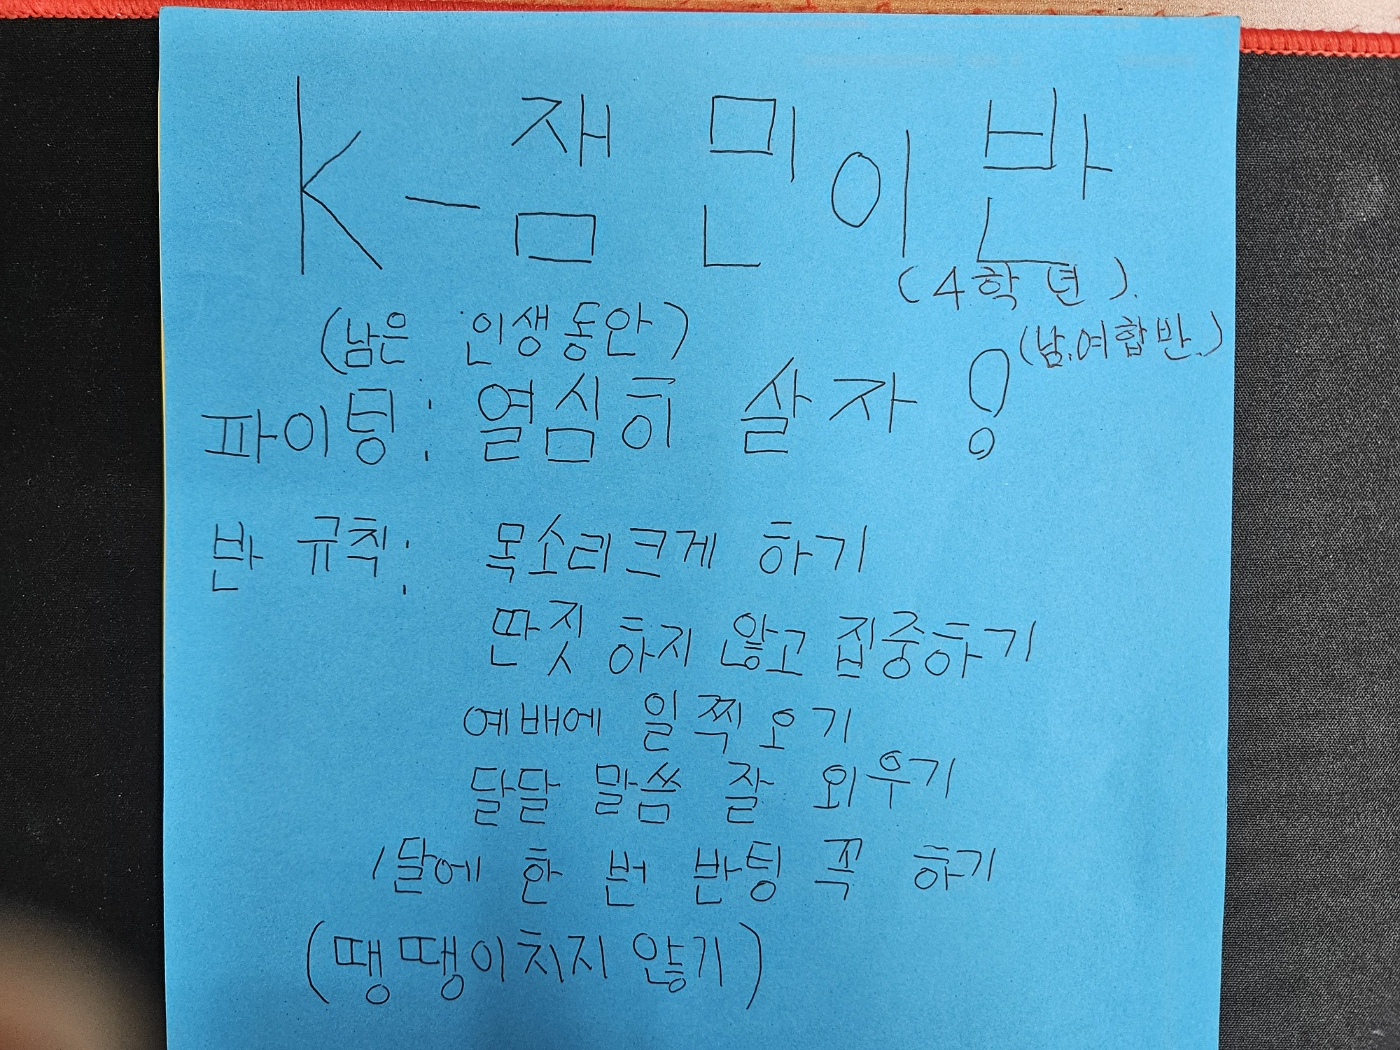 K-잼민이반
(4학년).
(남.여합반.)
(남은 인생동안)
파이팅: 열심히 살자!
반 규칙: 목소리크게 하기
딴짓 하지 않고 집중하기
예배에 일찍 오기
달달 말씀 잘 외우기
1달에 한 번 반팅 꼭 하기
(땡땡이치지 않기)